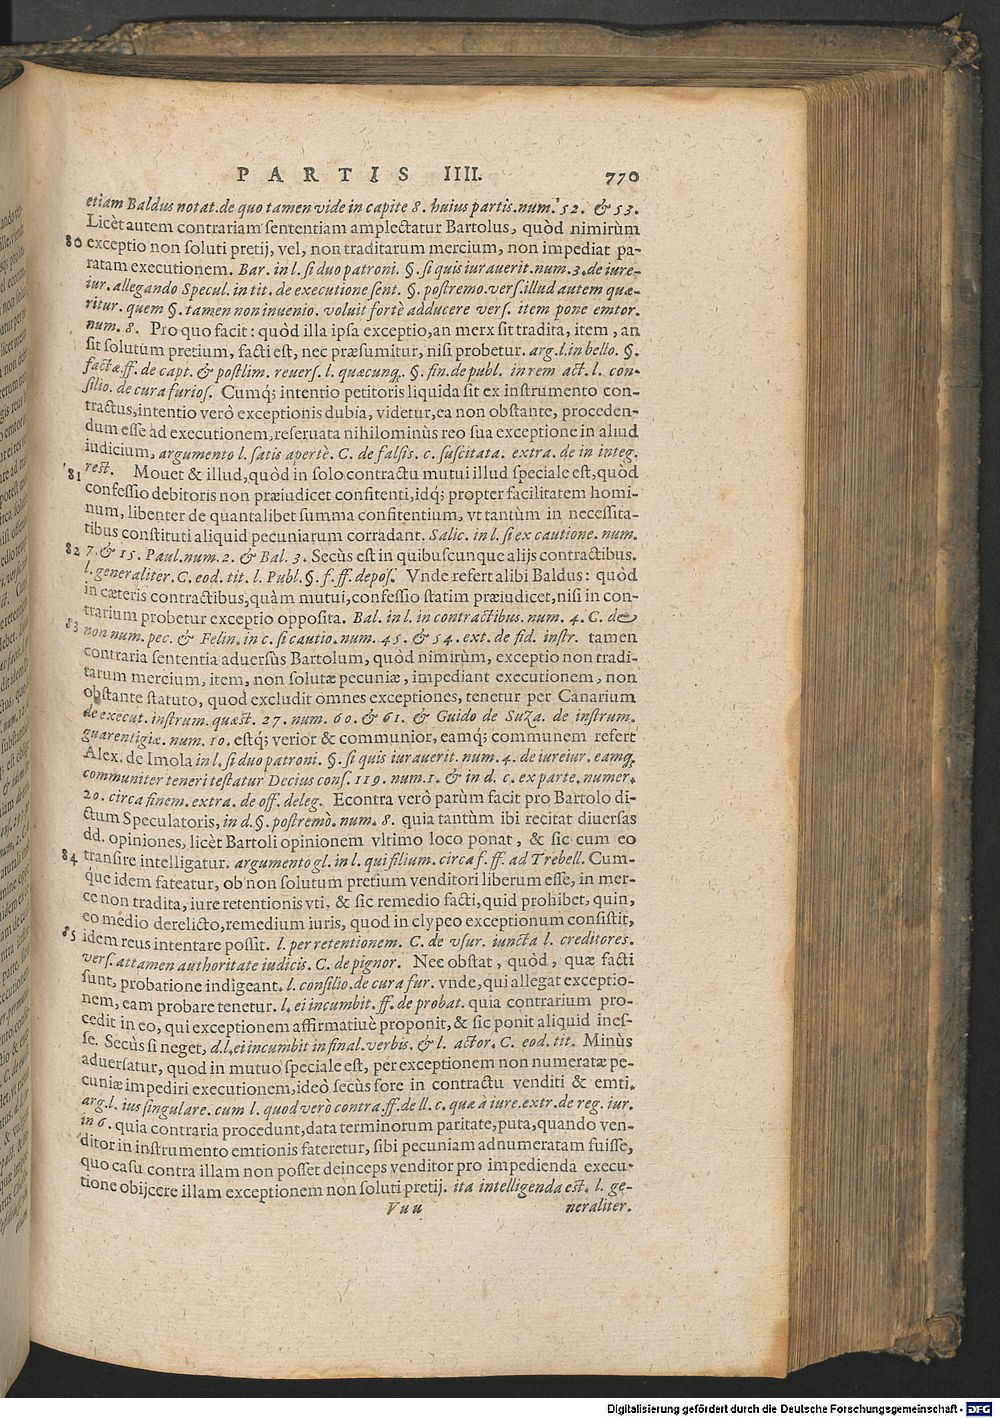 PARTIS IIII. 770
etiam Baldus notat. de quo tamen vide in capite 8. huius partis. num. 52. & 53.
Licèt autem contrariam sententiam amplectatur Bartolus, quòd nimirùm
80 exceptio non soluti pretij, vel, non traditarum mercium, non impediat pa-
ratam executionem. Bar. in l. si duo patroni. §. si quis iurauerit. num. 3. de iure-
iur. allegando Specul. in tit. de executione sent. §. postremo. vers. illud autem quæ-
ritur. quem §. tamen non inuenio. voluit fortè adducere vers. item pone emtor.
num. 8. Pro quo facit: quòd illa ipsa exceptio, an merx sit tradita, item, an
sit solutum pretium, facti est, nec præsumitur, nisi probetur. arg. l. in bello. §.
factæ. ff. de capt. & postlim. reuers. l. quæcunq. §. fin. de publ. in rem act. l. con-
silio. de cura furios. Cumq; intentio petitoris liquida sit ex instrumento con-
tractus, intentio verò exceptionis dubia, videtur, ea non obstante, proceden-
dum esse ad executionem, reseruata nihilominùs reo sua exceptione in aliud
iudicium, argumento l. satis apertè. C. de falsis. c. suscitata. extra. de in integ.
81 rest. Mouet & illud, quòd in solo contractu mutui illud speciale est, quòd
confessio debitoris non præiudicet confitenti, idq; propter facilitatem homi-
num, libenter de quantalibet summa confitentium, vt tantùm in necessita-
tibus constituti aliquid pecuniarum corradant. Salic. in l. si ex cautione. num.
82 7. & 15. Paul. num. 2. & Bal. 3. Secùs est in quibuscunque alijs contractibus.
l. generaliter. C. eod. tit. l. Publ. §. f. ff. depos. Vnde refert alibi Baldus: quòd
in cæteris contractibus, quàm mutui, confessio statim præiudicet, nisi in con-
trarium probetur exceptio opposita. Bal. in l. in contractibus. num. 4. C. de
83 non num. pec. & Felin. in c. si cautio. num. 45. & 54. ext. de fid. instr. tamen
contraria sententia aduersùs Bartolum, quòd nimirùm, exceptio non tradi-
tarum mercium, item, non solutæ pecuniæ, impediant executionem, non
obstante statuto, quod excludit omnes exceptiones, tenetur per Canarium
de execut. instrum. quæst. 27. num. 60. & 61. & Guido de Suza. de instrum.
guarentigiæ. num. 10. estq; verior & communior, eamq; communem refert
Alex. de Imola in l. si duo patroni. §. si quis iurauerit. num. 4. de iureiur. eamq.
communiter teneri testatur Decius cons. 119. num. 1. & in d. c. ex parte. numer.
20. circa finem. extra. de off. deleg. Econtra verò parùm facit pro Bartolo di-
ctum Speculatoris, in d. §. postremò. num. 8. quia tantùm ibi recitat diuersas
dd. opiniones, licèt Bartoli opinionem vltimo loco ponat, & sic cum eo
84 transire intelligatur. argumento gl. in l. qui filium. circa f. ff. ad Trebell. Cum-
que idem fateatur, ob non solutum pretium venditori liberum esse, in mer-
ce non tradita, iure retentionis vti, & sic remedio facti, quid prohibet, quin,
eo medio derelicto, remedium iuris, quod in clypeo exceptionum consistit,
85 idem reus intentare possit. l. per retentionem. C. de vsur. iuncta l. creditores.
vers. attamen authoritate iudicis. C. de pignor. Nec obstat, quòd, quæ facti
sunt, probatione indigeant. l. consilio. de cura fur. vnde, qui allegat exceptio-
nem, eam probare tenetur. l. ei incumbit. ff. de probat. quia contrarium pro-
cedit in eo, qui exceptionem affirmatiuè proponit, & sic ponit aliquid ines-
se. Secùs si neget, d. l. ei incumbit in final. verbis. & l. actor. C. eod. tit. Minùs
aduersatur, quod in mutuo speciale est, per exceptionem non numeratæ pe-
cuniæ impediri executionem, ideò secùs fore in contractu venditi & emti.
arg. l. ius singulare. cum l. quod verò contra. ff. de ll. c. quæ à iure. extr. de reg. iur.
in 6. quia contraria procedunt, data terminorum paritate, puta, quando ven-
ditor in instrumento emtionis fateretur, sibi pecuniam adnumeratam fuisse,
quo casu contra illam non posset deinceps venditor pro impedienda execu-
tione obijcere illam exceptionem non soluti pretij. ita intelligenda est. l. ge-
Vuu neraliter.
Digitalisierung gefördert durch die Deutsche Forschungsgemeinschaft - DFG